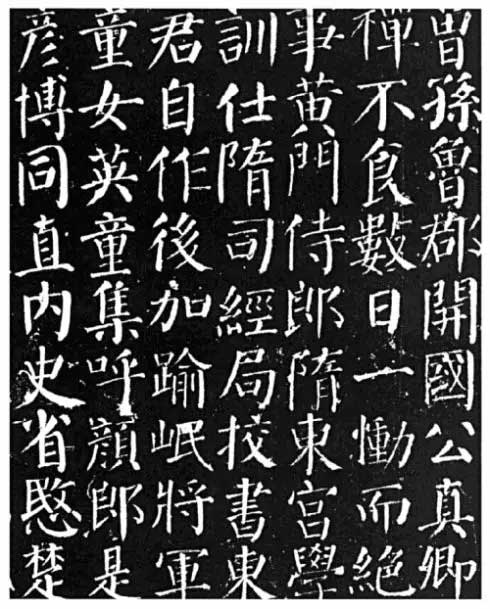 曾孫魯郡開國公真卿
禪不食數日一慟而絶
事黄門侍郎隋東宮學
訓仕隋司經局挍書東
君自作後加踰岷將軍
童女英童集呼顏郎是
彦博同直内史省愍楚